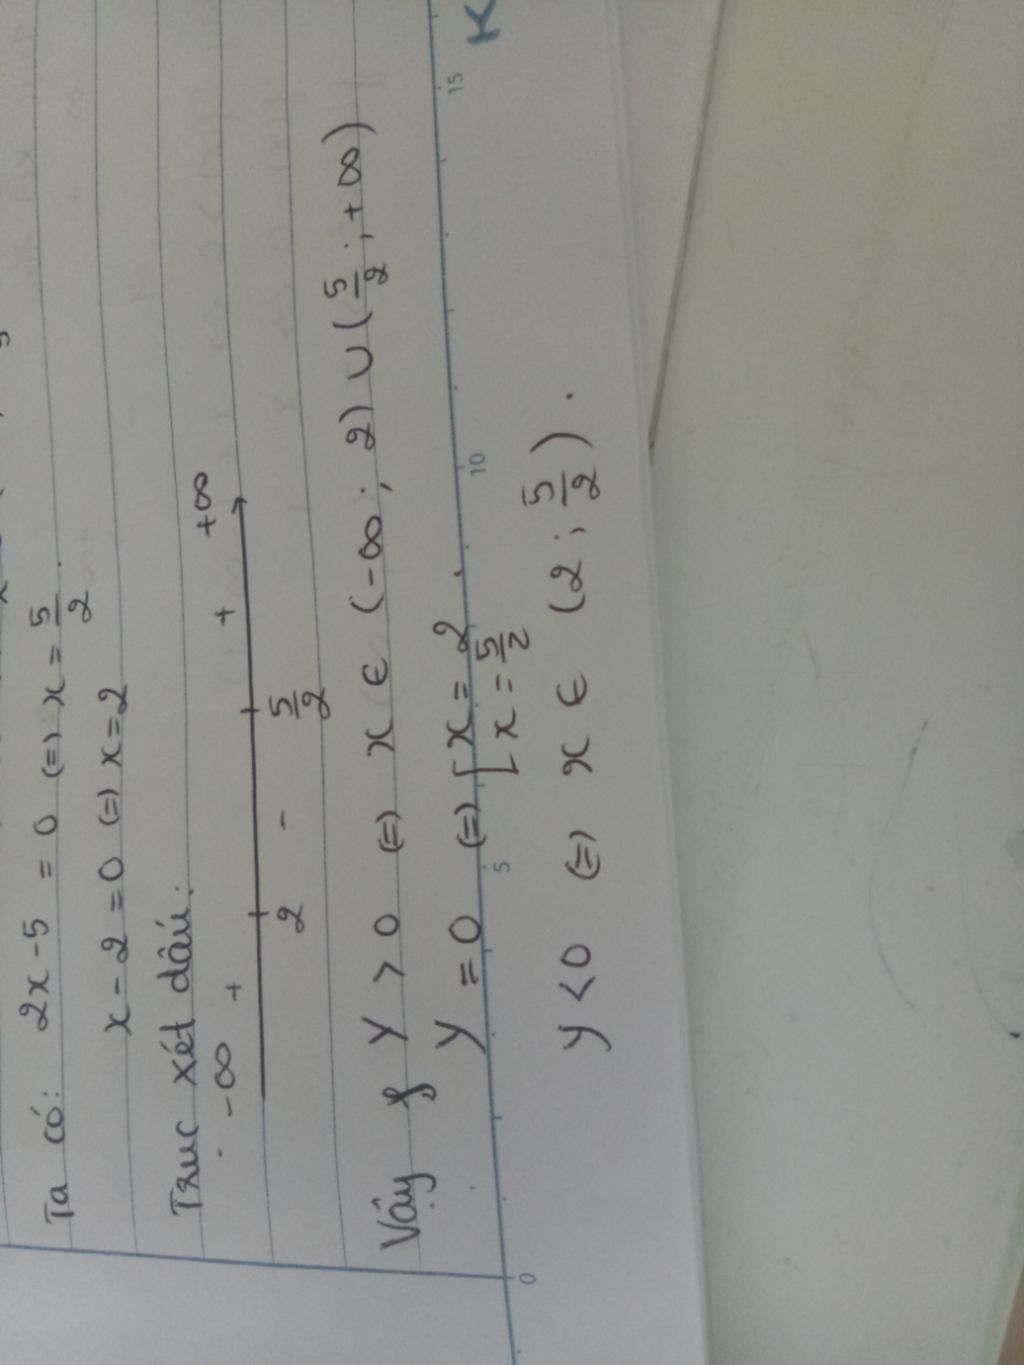 Ta có: 2x - 5 = 0 (=) x = 5/2.
x - 2 = 0 (=) x = 2
Trục xét dấu:
-∞ + + +∞
2 - 5/2
Vậy y > 0 (=) x ∈ (-∞; 2) ∪ (5/2; +∞)
y = 0 (=) [x = 2
x = 5/2
y < 0 (=) x ∈ (2; 5/2).
0 5 10 15
K